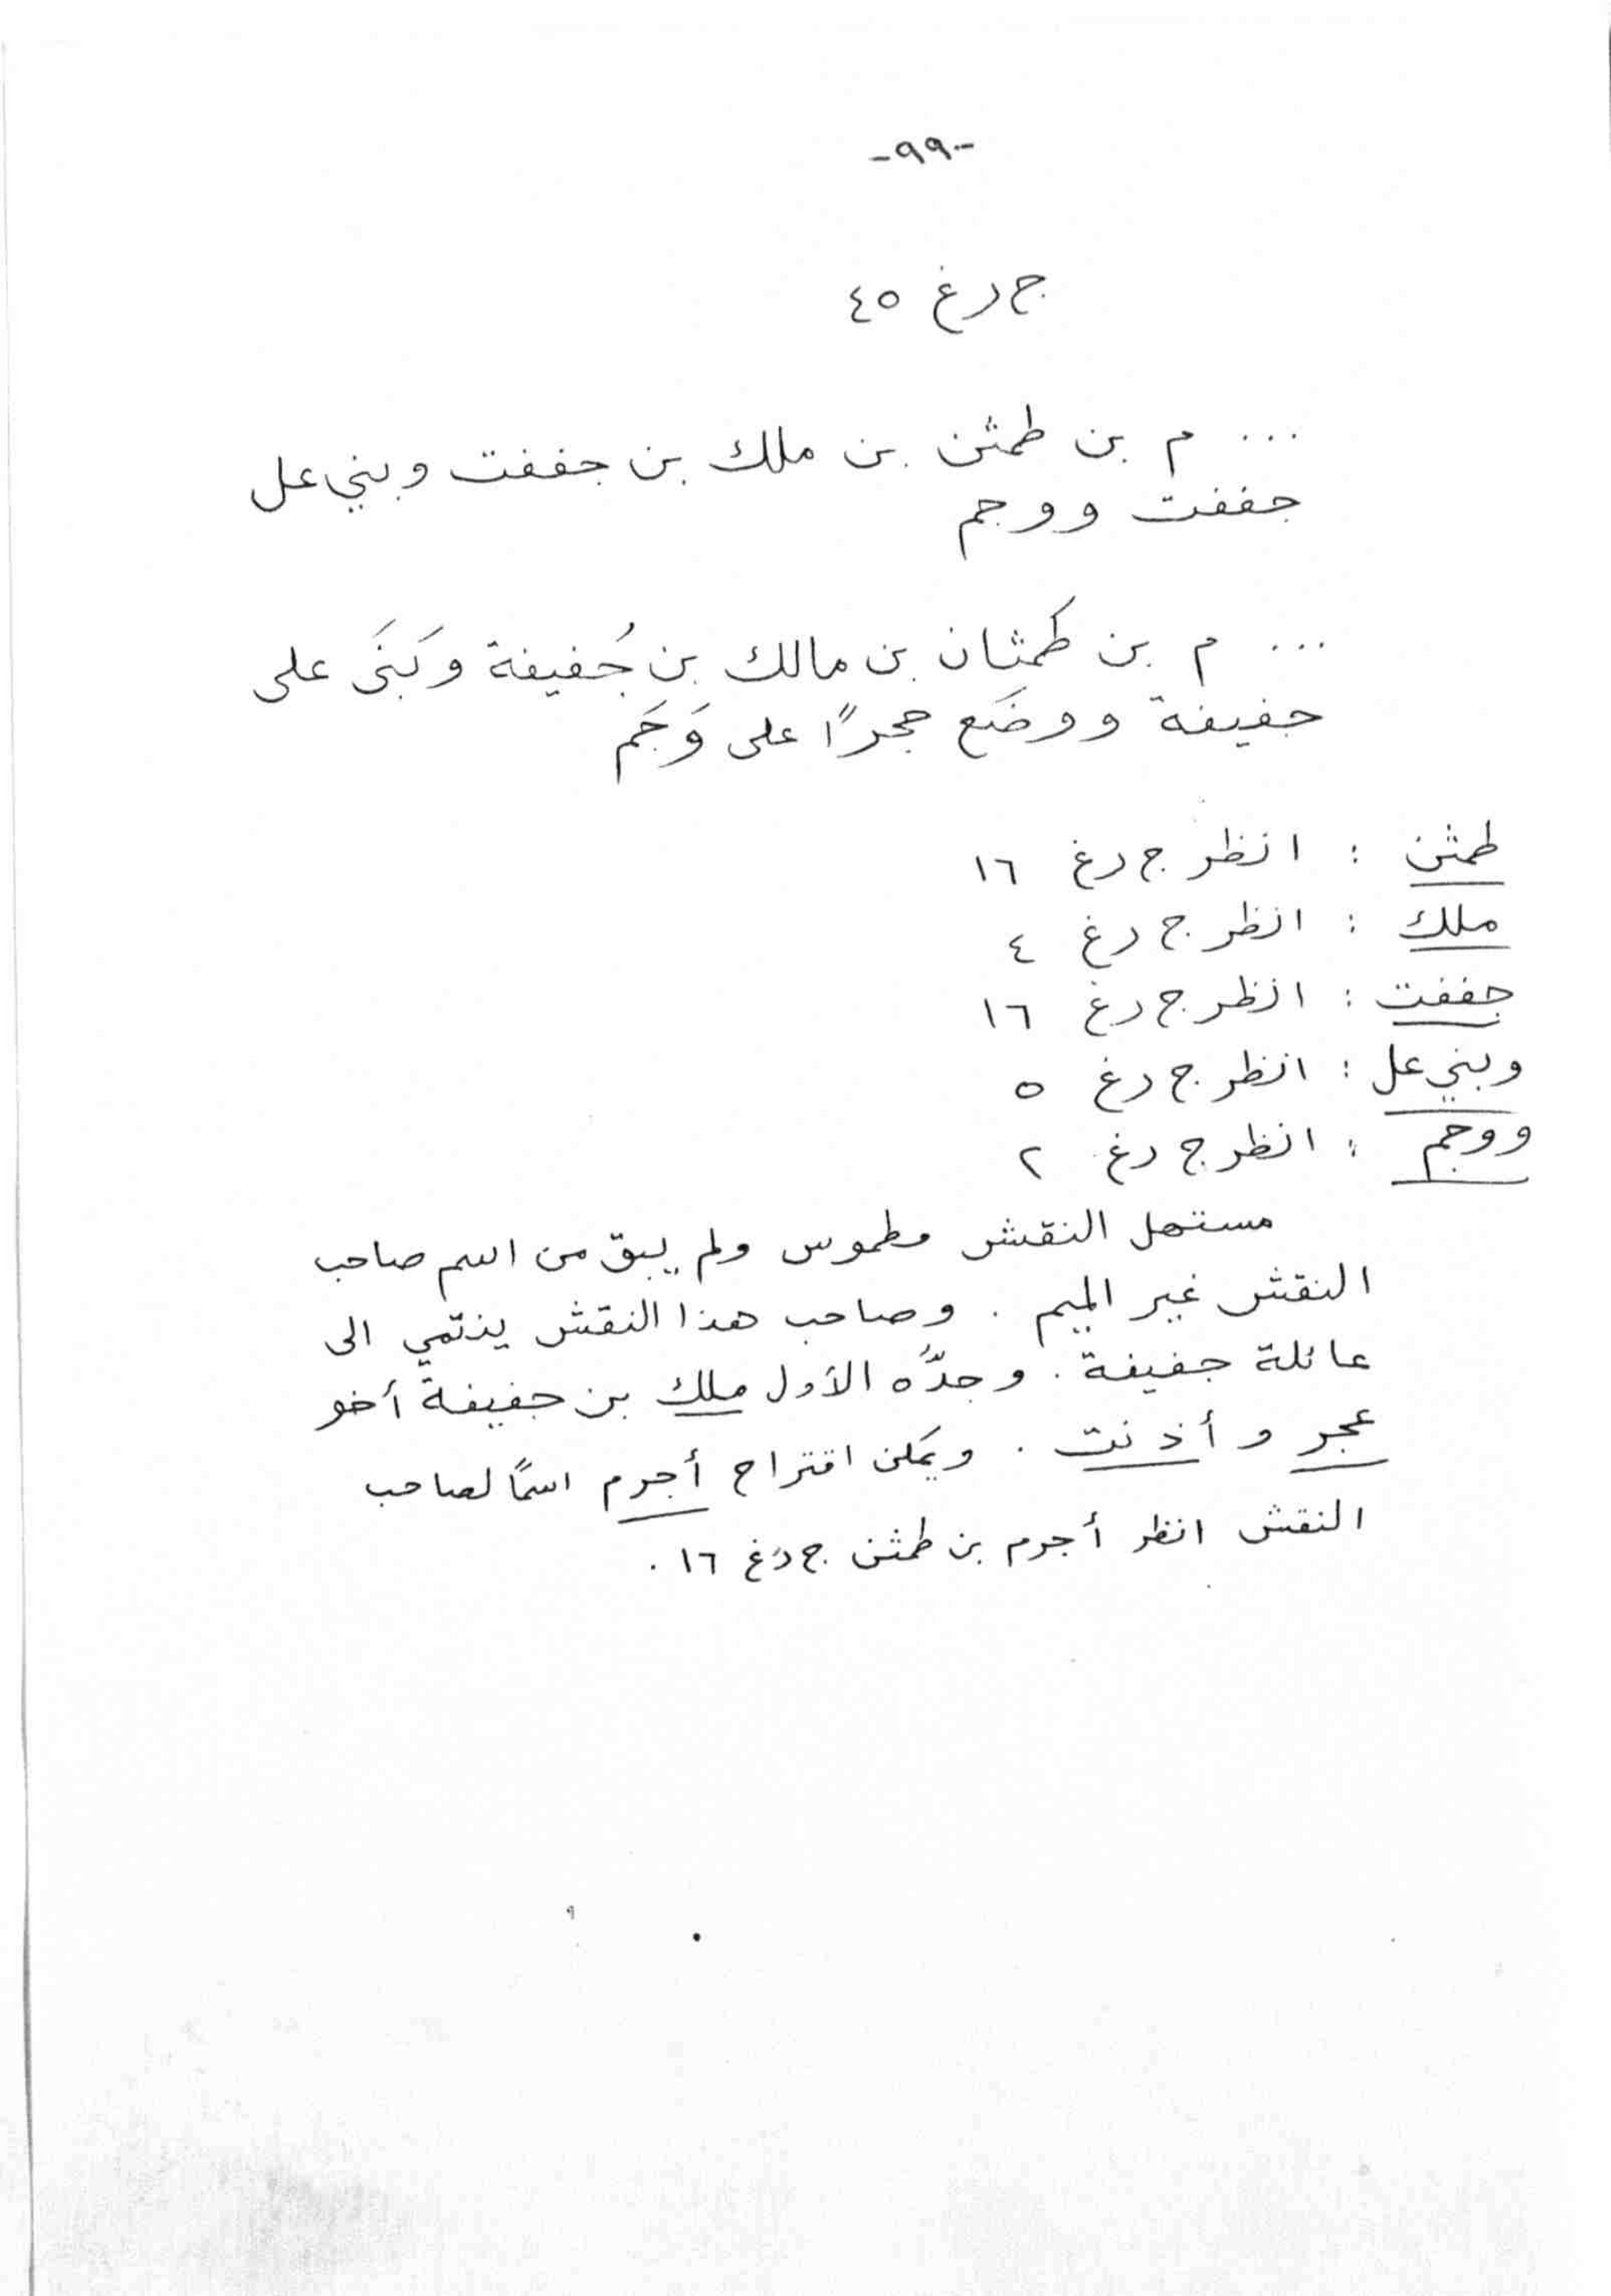 -٩٩-
ج رغ ٤٥
... م بن طمثن بن ملك بن جففت وبني عل
جففت ووجم
... م بن طَمْثان بن مالك بن جُفيفة وبَنَى على
جفيفة ووضَع حجرًا على وَجَم
طمثن : انظر ج رغ ١٦
ملك : انظر ج رغ ٤
جففت : انظر ج رغ ١٦
وبني عل : انظر ج رغ ٥
ووجم : انظر ج رغ ٢
مستهل النقش مطموس ولم يبق من اسم صاحب
النقش غير الميم . وصاحب هذا النقش ينتمي الى
عائلة جفيفة . وجدُّه الأول ملك بن جفيفة أخو
عجر و أذ نت . ويمكن اقتراح أجرم اسمًا لصاحب
النقش انظر أجرم بن طمثن ج رغ ١٦ .